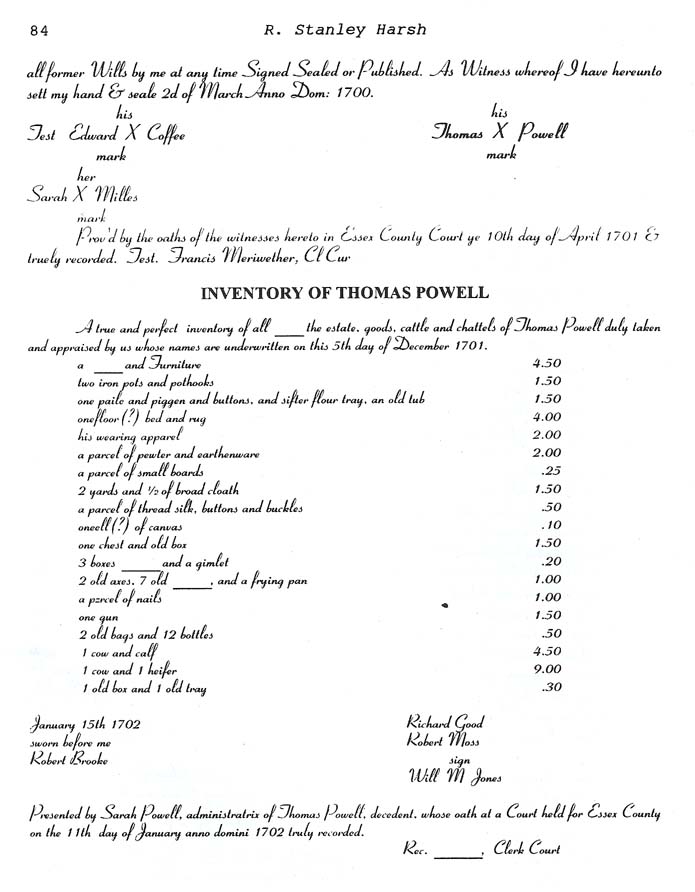 84 R. Stanley Harsh
all former Wills by me at any time Signed Sealed or Published. As Witness whereof I have hereunto
sett my hand & seale 2d of March Anno Dom: 1700.
his his
Test Edward X Coffee Thomas X Powell
mark mark
her
Sarah X Milles
mark
Prov'd by the oaths of the witnesses hereto in Essex County Court ye 10th day of April 1701 &
truely recorded. Test. Francis Meriwether, Cl Cur
INVENTORY OF THOMAS POWELL
A true and perfect inventory of all ____ the estate, goods, cattle and chattels of Thomas Powell duly taken
and appraised by us whose names are underwritten on this 5th day of December 1701.
a ____ and Furniture 4.50
two iron pots and pothooks 1.50
one paile and piggen and buttons, and sifter flour tray, an old tub 1.50
onefloor(?) bed and rug 4.00
his wearing apparel 2.00
a parcel of pewter and earthenware 2.00
a parcel of small boards .25
2 yards and 1/2 of broad cloath 1.50
a parcel of thread silk, buttons and buckles .50
oneell(?) of canvas .10
one chest and old box 1.50
3 boxes ____ and a gimlet .20
2 old axes, 7 old ____, and a frying pan 1.00
a parcel of nails 1.00
one gun 1.50
2 old bags and 12 bottles .50
1 cow and calf 4.50
1 cow and 1 heifer 9.00
1 old box and 1 old tray .30
January 15th 1702 Richard Good
sworn before me Robert Moss
Robert Brooke sign
Will M Jones
Presented by Sarah Powell, administratrix of Thomas Powell, decedent, whose oath at a Court held for Essex County
on the 11th day of January anno domini 1702 truly recorded.
Rec. ____, Clerk Court